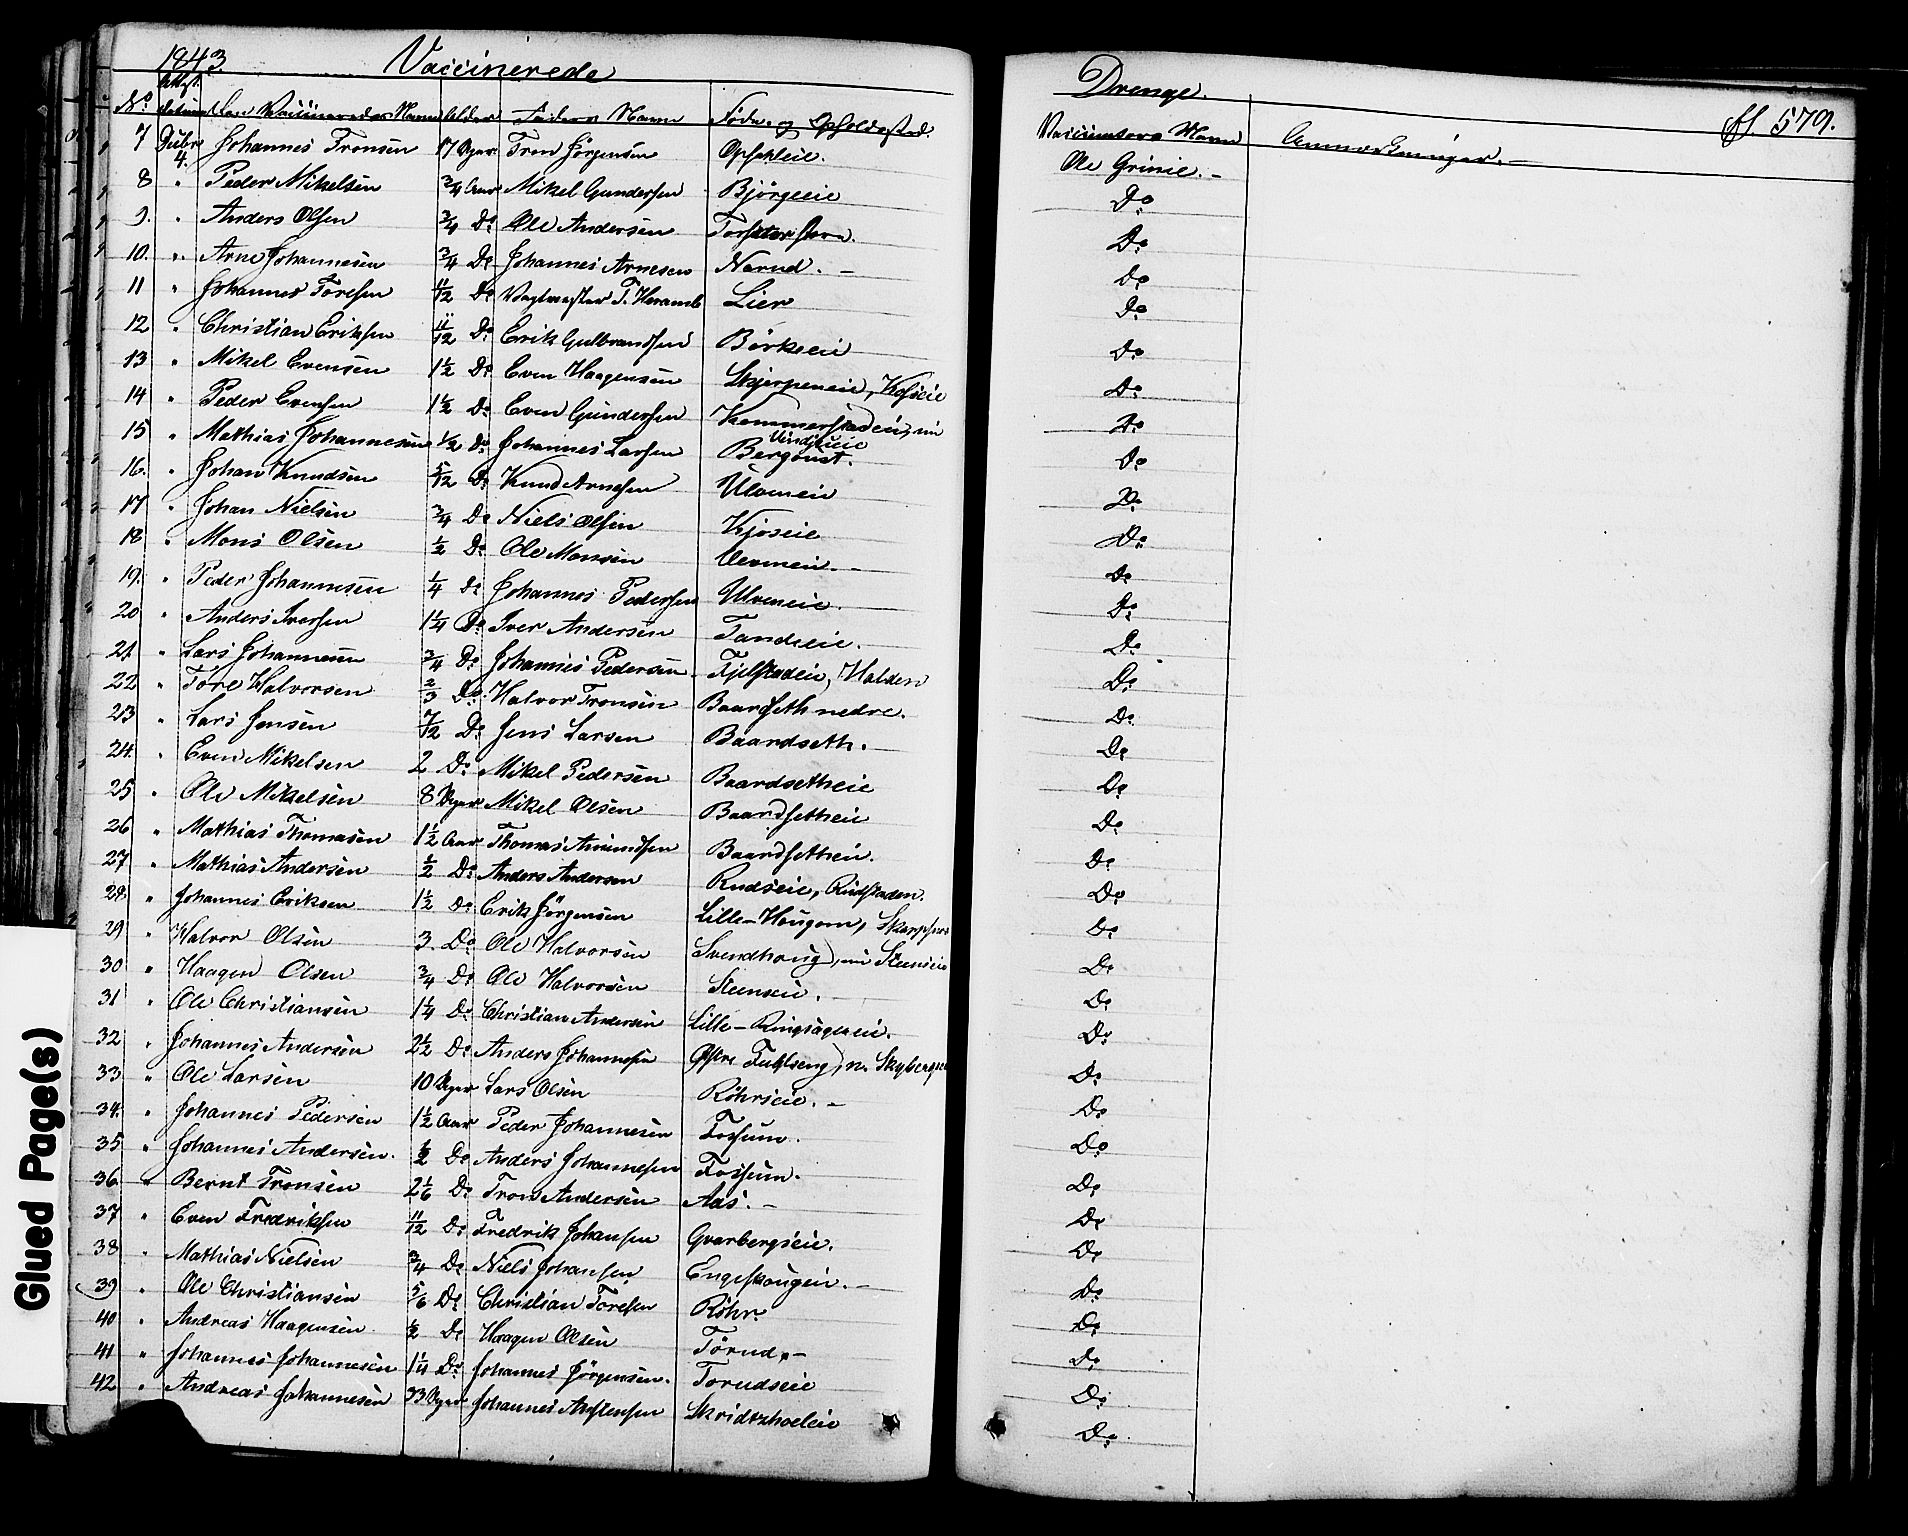 1843. Vaccinerede Drenge. fl. 579.
No. Attest. datum Den Vaccineredes Navn Alder Faders Navn Føde- og Opholdssted. Vaccinators Navn Anmærkninger. -
7 Decbr 4. Johannes Tronsen 17 Uger Tron Jörgensen Opsahleie. Ole Grinie. -
8 " Peder Mikelsen 3/4 Aar Mikel Gundersen Bjørgeeie Do
9. " Anders Olsen 3/4 Do Ole Andersen Do
10. " Arne Johannesen 3/4 Do Johannes Arnesen Narud. - Do
11 " Johannes Toresen 11/12 Do T. Heramb Lier Do
12 " Christian Eriksen 11/12 Do Erik Gulbrandsen Börkeeie Do
13 " Mikel Evensen 1 1/2 Do Even Haagensen Skjerpeneie, Do
14 " Peder Evensen 1 1/2 Do Even Gundersen Kommerstadeie, nu Do
15 " Mathias Johannesen 1/2 Do Johannes Larsen Bergoust. Do
16. " Johan Knudsen 5/12 Do Knud Arnesen Ulveneie Do
17 " Johan Nielsen 3/4 Do Niels Olsen Kjoseie Do
18 " Mons Olsen 1/2 Do Ole Monsen Do
19. " Peder Johannesen 1/4 Do Johannes Pedersen Ulveneie. Do
20 " Anders Iversen 1 1/4 Do Iver Andersen Tandeeie. Do
21. " Lars Johannesen 3/4 Do Johannes Pedersen Fjelstadeie, Halden Do
22 " Tore Halvorsen 2/3 Do Halvor Tronsen Baardseth nedre. Do
23 " Lars Jensen 7/12 Do Jens Larsen Baardseth. - Do
24. " Even Mikelsen 2 Do Mikel Pedersen Baardsetheie Do
25 " Ole Mikelsen 8 Uger Mikel Olsen Baardsetheie Do
26 " Mathias Thomasen 1 1/2 Aar Thomas Amundsen Baardsetheie. Do
27 " Mathias Andersen 1/2 Do Anders Andersen Rudseie, Rudstaden. Do
28 " Johannes Eriksen 1 1/2 Do Erik Jörgensen Lille-Hougom, Do
29 " Halvor Olsen 3. Do Ole Halvorsen Svendhoug, nu Steenseie Do
30 " Haagen Olsen 3/4 Do Ole Halvorsen Steenseie. Do
31 " Ole Christiansen 1 1/4 Do Christian Andersen Lille-Ringsagereie. Do
32 " Johannes Andersen 2 1/2 Do Anders Johannesen Do
33 " Ole Larsen 10 Uger Lars Olsen Röhrseie. - Do
34. " Johannes Pedersen 1 1/2 Aar Peder Johannesen Fossum. Do
35 " Johannes Andersen. 1/2 Do Anders Johannesen Fossum. Do
36 " Bernt Tronsen 2 1/6 Do Tron Andersen Aas. - Do
37 " Even Fredriksen 11/12 Do Fredrik Johansen Gvarbergseie. Do
38 " Mathias Nielsen 3/4 Do Niels Johansen Engeskougeie. - Do
39 " Ole Christiansen 5/6 Do Christian Toresen Röhr. Do
40 " Andreas Haagensen 1/2 Do Haagen Olsen Törud, - Do
41 " Johannes Johannesen 1 1/4 Do Johannes Jörgensen. Torudseie Do
42 " Andreas Johannesen 33 Uger Johannes Do
Glued Page(s)